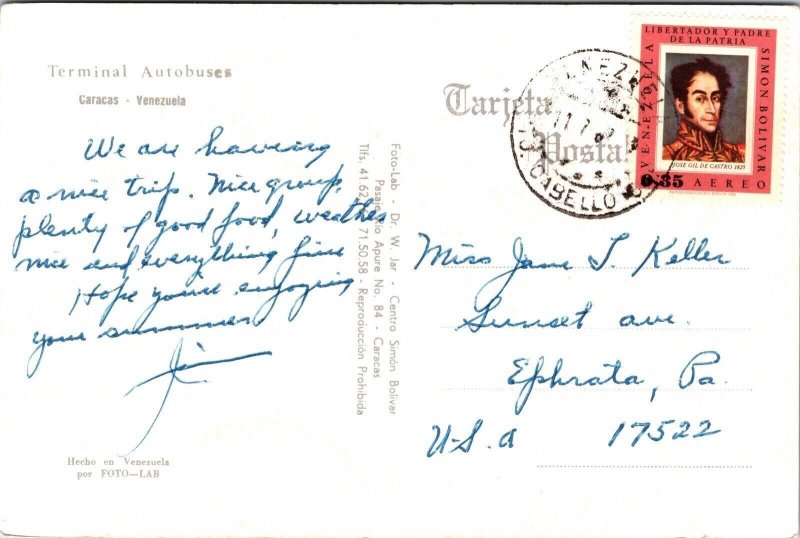 Terminal Autobuses
Caracas - Venezuela
We are having
a nice trip. Nice group,
plenty of good food, weather
nice and everything fine
Hope you're enjoying
your summer
Jim
Hecho en Venezuela
por FOTO—LAB
Foto-Lab - Dr. W. Jar - Centro Simón Bolívar
Río Apure No. 84 - Caracas
Tlfs. 41.62 71.50.58 - Reproducción Prohibida
Tarjeta
Postal
VENEZUELA
CABELLO
LIBERTADOR Y PADRE
DE LA PATRIA
SIMON BOLIVAR
VENEZUELA
JOSE GIL DE CASTRO, 1825
0.35 AEREO
Miss Jane T. Keller
Sunset ave.
Ephrata, Pa.
U.S.A 17522